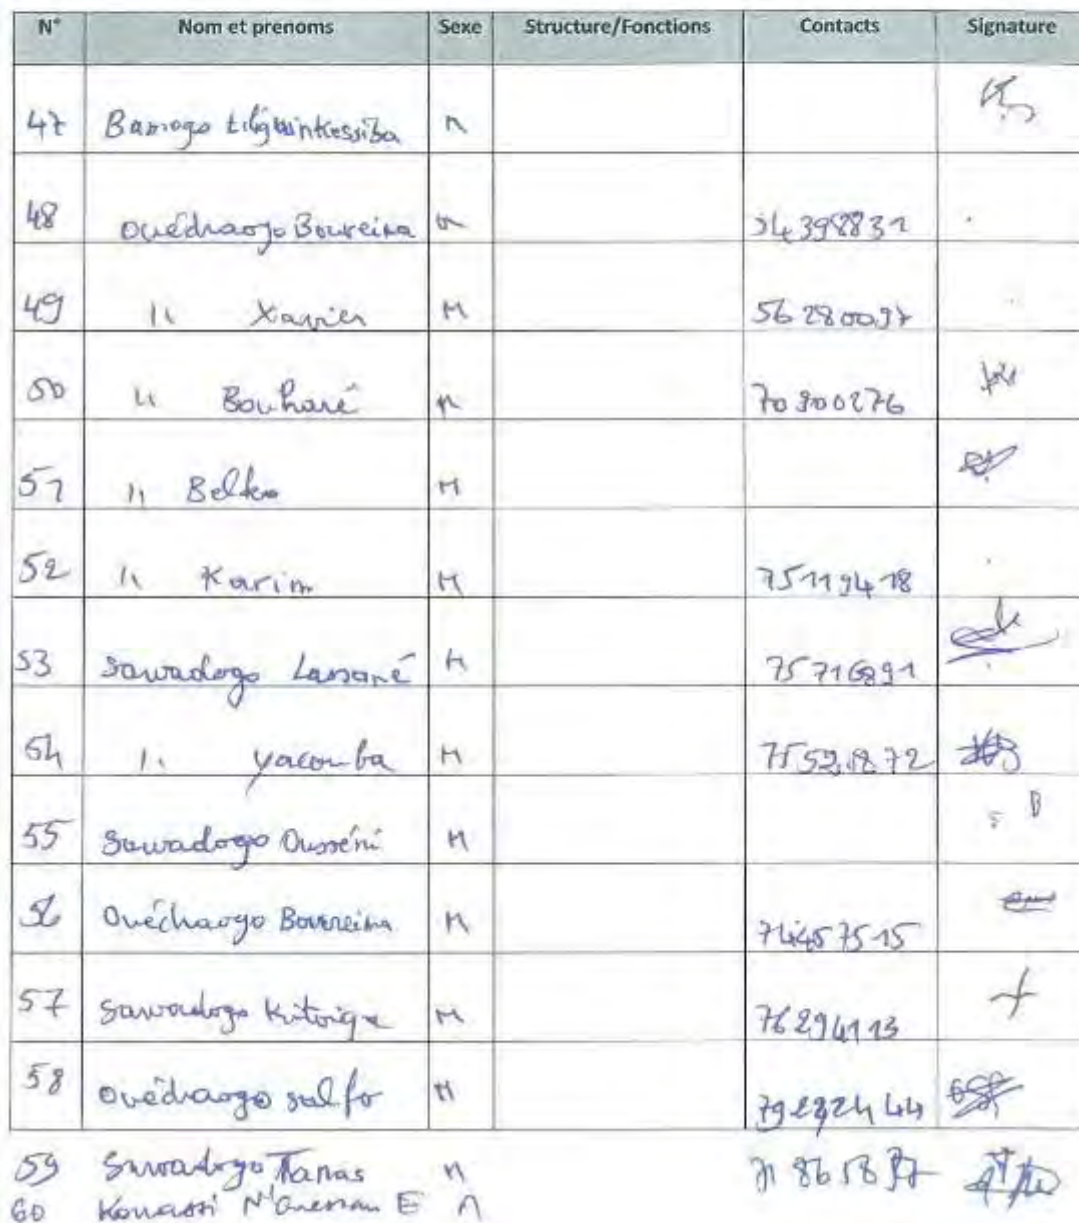 N° Nom et prenoms Sexe Structure/Fonctions Contacts Signature
47 Bamogo M
48 Ouédraogo Boureima M 54398831
49 〃 Xavier M 56280097
50 〃 Bouharé M 70900276
51 〃 Belko M
52 〃 Karim M 75119418
53 Sawadogo Lassané M 75716891
54 〃 Yacouba M
55 Sawadogo Ousséni M
56 Ouédraogo Boureima M 74457515
57 Sawadogo M 76294113
58 Ouédraogo Salfo M
59 Sawadogo M
60 Kouassi E M